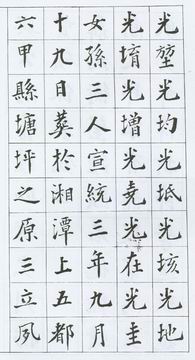 光堃光均光坻光垓光地
光堉光增光堯光在光圭
女孫三人宣統三年九月
十九日葬於湘潭上五都
六甲縣塘坪之原三立夙